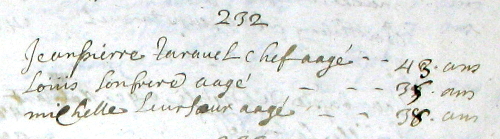 232
Jean pierre turavel chef aagé - - 43 ans
Loüis son frere aagé - - - 35 ans
michelle leur sœur aagé - - - 38 ans